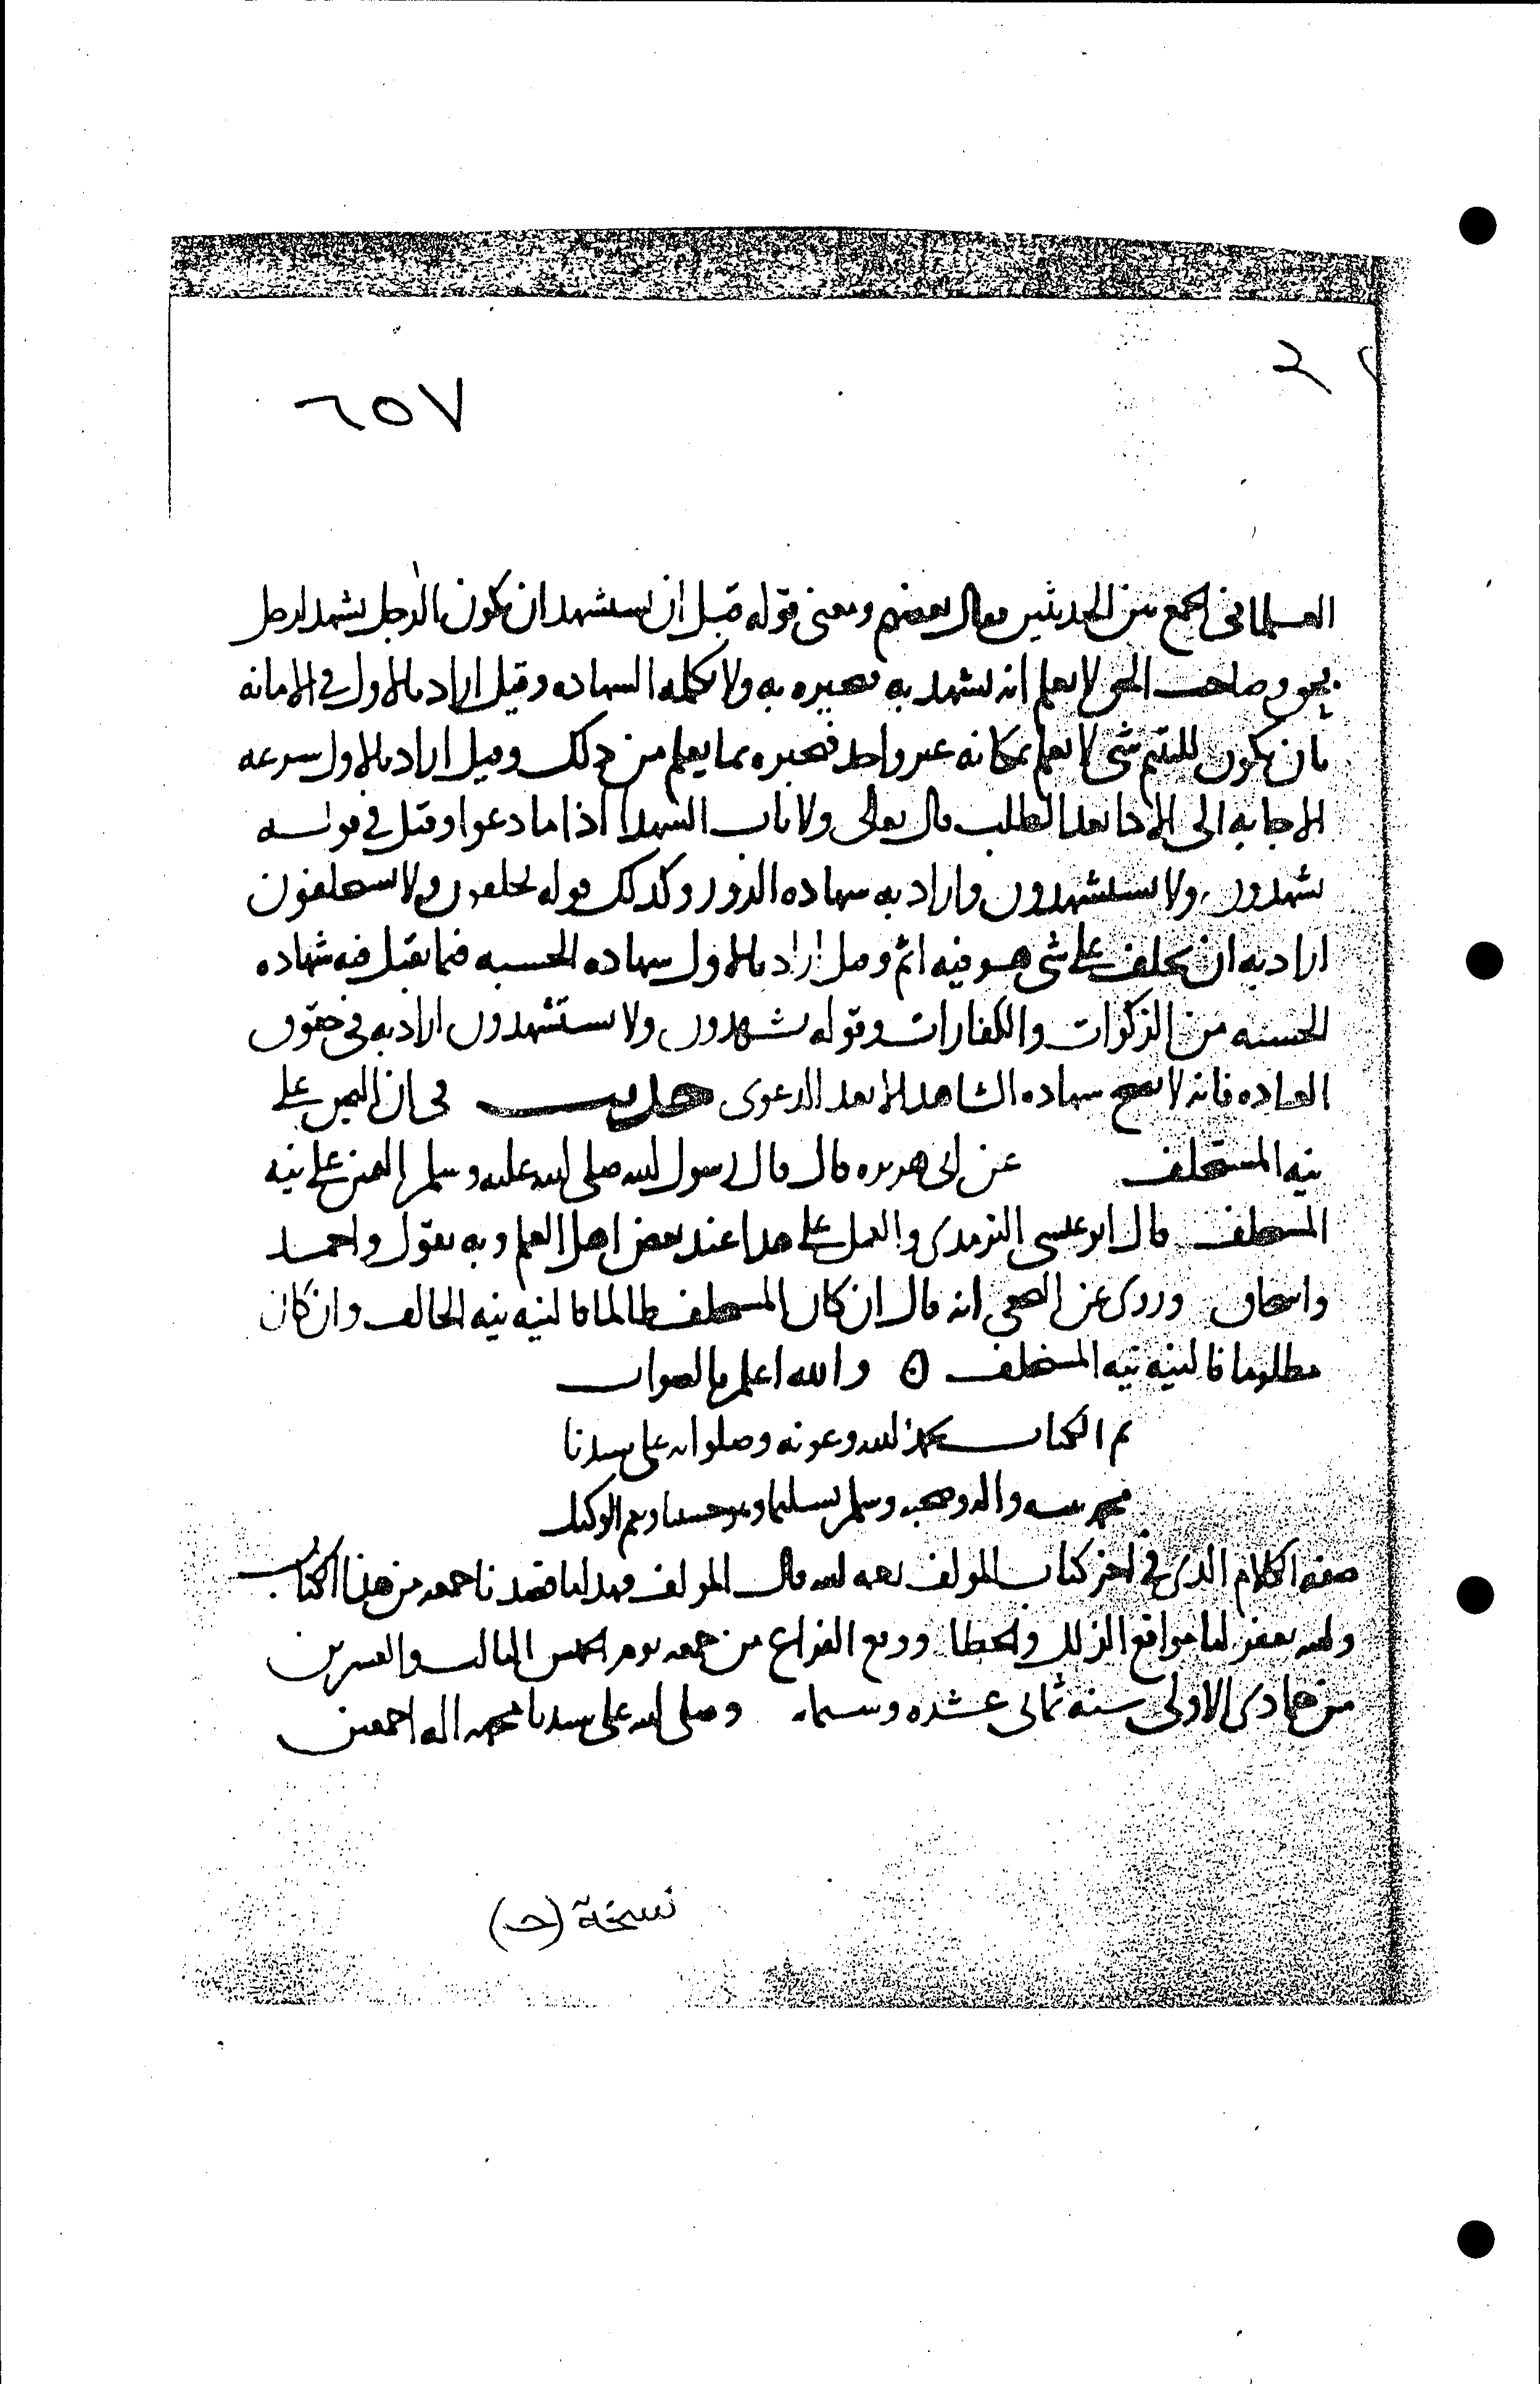 ٦٥٧
العلما في الجمع بين الحديثين فقال بعضهم ومعنى قوله قبل ان يستشهد ان يكون الرجل يشهد لرجل
بحق وصاحب الحق لا يعلم انه يشهد به فيخبره به ولا يكتمه الشهاده وقيل اراد بالاول في الامانه
بان يكون لليتيم شي لا يعلم بمكانه غير واحد فيخبره بما يعلم من ذلك وقيل اراد بالاول سرعه
الاجابه الى الادا بعد الطلب قال تعالى ولا ياب الشهدا اذا ما دعوا وقيل في قوله
يشهدون ولا يستشهدون واراد به شهاده الزور وكذلك قوله يحلفون ولا يستحلفون
اراد به ان يحلف على شي هو فيه اثم وقيل اراد بالاول شهاده الحسبه فيما يقبل فيه شهاده
الحسبه من الزكوات والكفارات وقوله يشهدون ولا يستشهدون اراد به في حقوق
العباده فانه لا يصح شهاده الشاهد الا بعد الدعوى حديث في ان اليمين على
نيه المستحلف عن ابي هريره قال قال رسول الله صلى الله عليه وسلم اليمين على نيه
المستحلف قال ابو عيسى الترمذي والعمل على هذا عند بعض اهل العلم وبه يقول واحمد
واسحاق وروى عن النخعي انه قال ان كان المستحلف ظالما فالنيه نيه الحالف وان كان
مظلوما فالنيه نيه المستحلف والله اعلم بالصواب
تم الكتاب بحمد الله وعونه وصلواته على سيدنا
محمد نبيه واله وصحبه وسلم تسليما وهو حسبنا ونعم الوكيل
صفه الكلام الذي في اخر كتاب المولف رحمه الله قال المولف فهذا ما قصدنا جمعه من هذا الكتاب
والله يغفر لنا مواقع الزلل والخطا ووقع الفراغ من جمعه يوم الخميس الثالث والعشرين
من جمادى الاولى سنه ثماني عشره وستمايه وصلى الله على سيدنا محمد اله اجمعين
نسخة (ح)